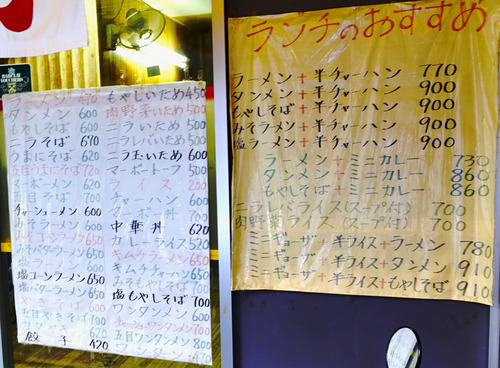 ラーメン 470
タンメン 600
もやしそば 600
ニラそば 670
うまにそば 620
五目うまにそば 720
マーボーメン 620
五目そば 700
チャーシューメン 600
みそラーメン 600
みそバターラーメン 650
塩ラーメン 600
塩コーンラーメン 650
塩バターラーメン 650
やきそば 600
五目やきそば 700
餃子 420
もやしいため 450
肉野菜いため 500
ニラいため 500
ニラレバいため 500
ニラ玉いため 600
マーボートーフ 500
ライス 200
チャーハン 600
マーボ丼 700
中華丼 620
カレーライス 520
キムチラーメン 650
キムチチャーハン 650
みそもやしそば 700
塩もやしそば 700
ワンタンメン 600
チャーシューワンタンメン 700
五目ワンタンメン 800
ワンタン 470
ランチのおすすめ
ラーメン+半チャーハン 770
タンメン+半チャーハン 900
もやしそば+半チャーハン 900
みそラーメン+半チャーハン 900
塩ラーメン+半チャーハン 900
ラーメン+ミニカレー 730
タンメン+ミニカレー 860
もやしそば+ミニカレー 860
ニラレバライス(スープ付) 700
肉野菜ライス(スープ付) 700
ミニギョーザ+半ライス+ラーメン 780
ミニギョーザ+半ライス+タンメン 910
ミニギョーザ+半ライス+もやしそば 910